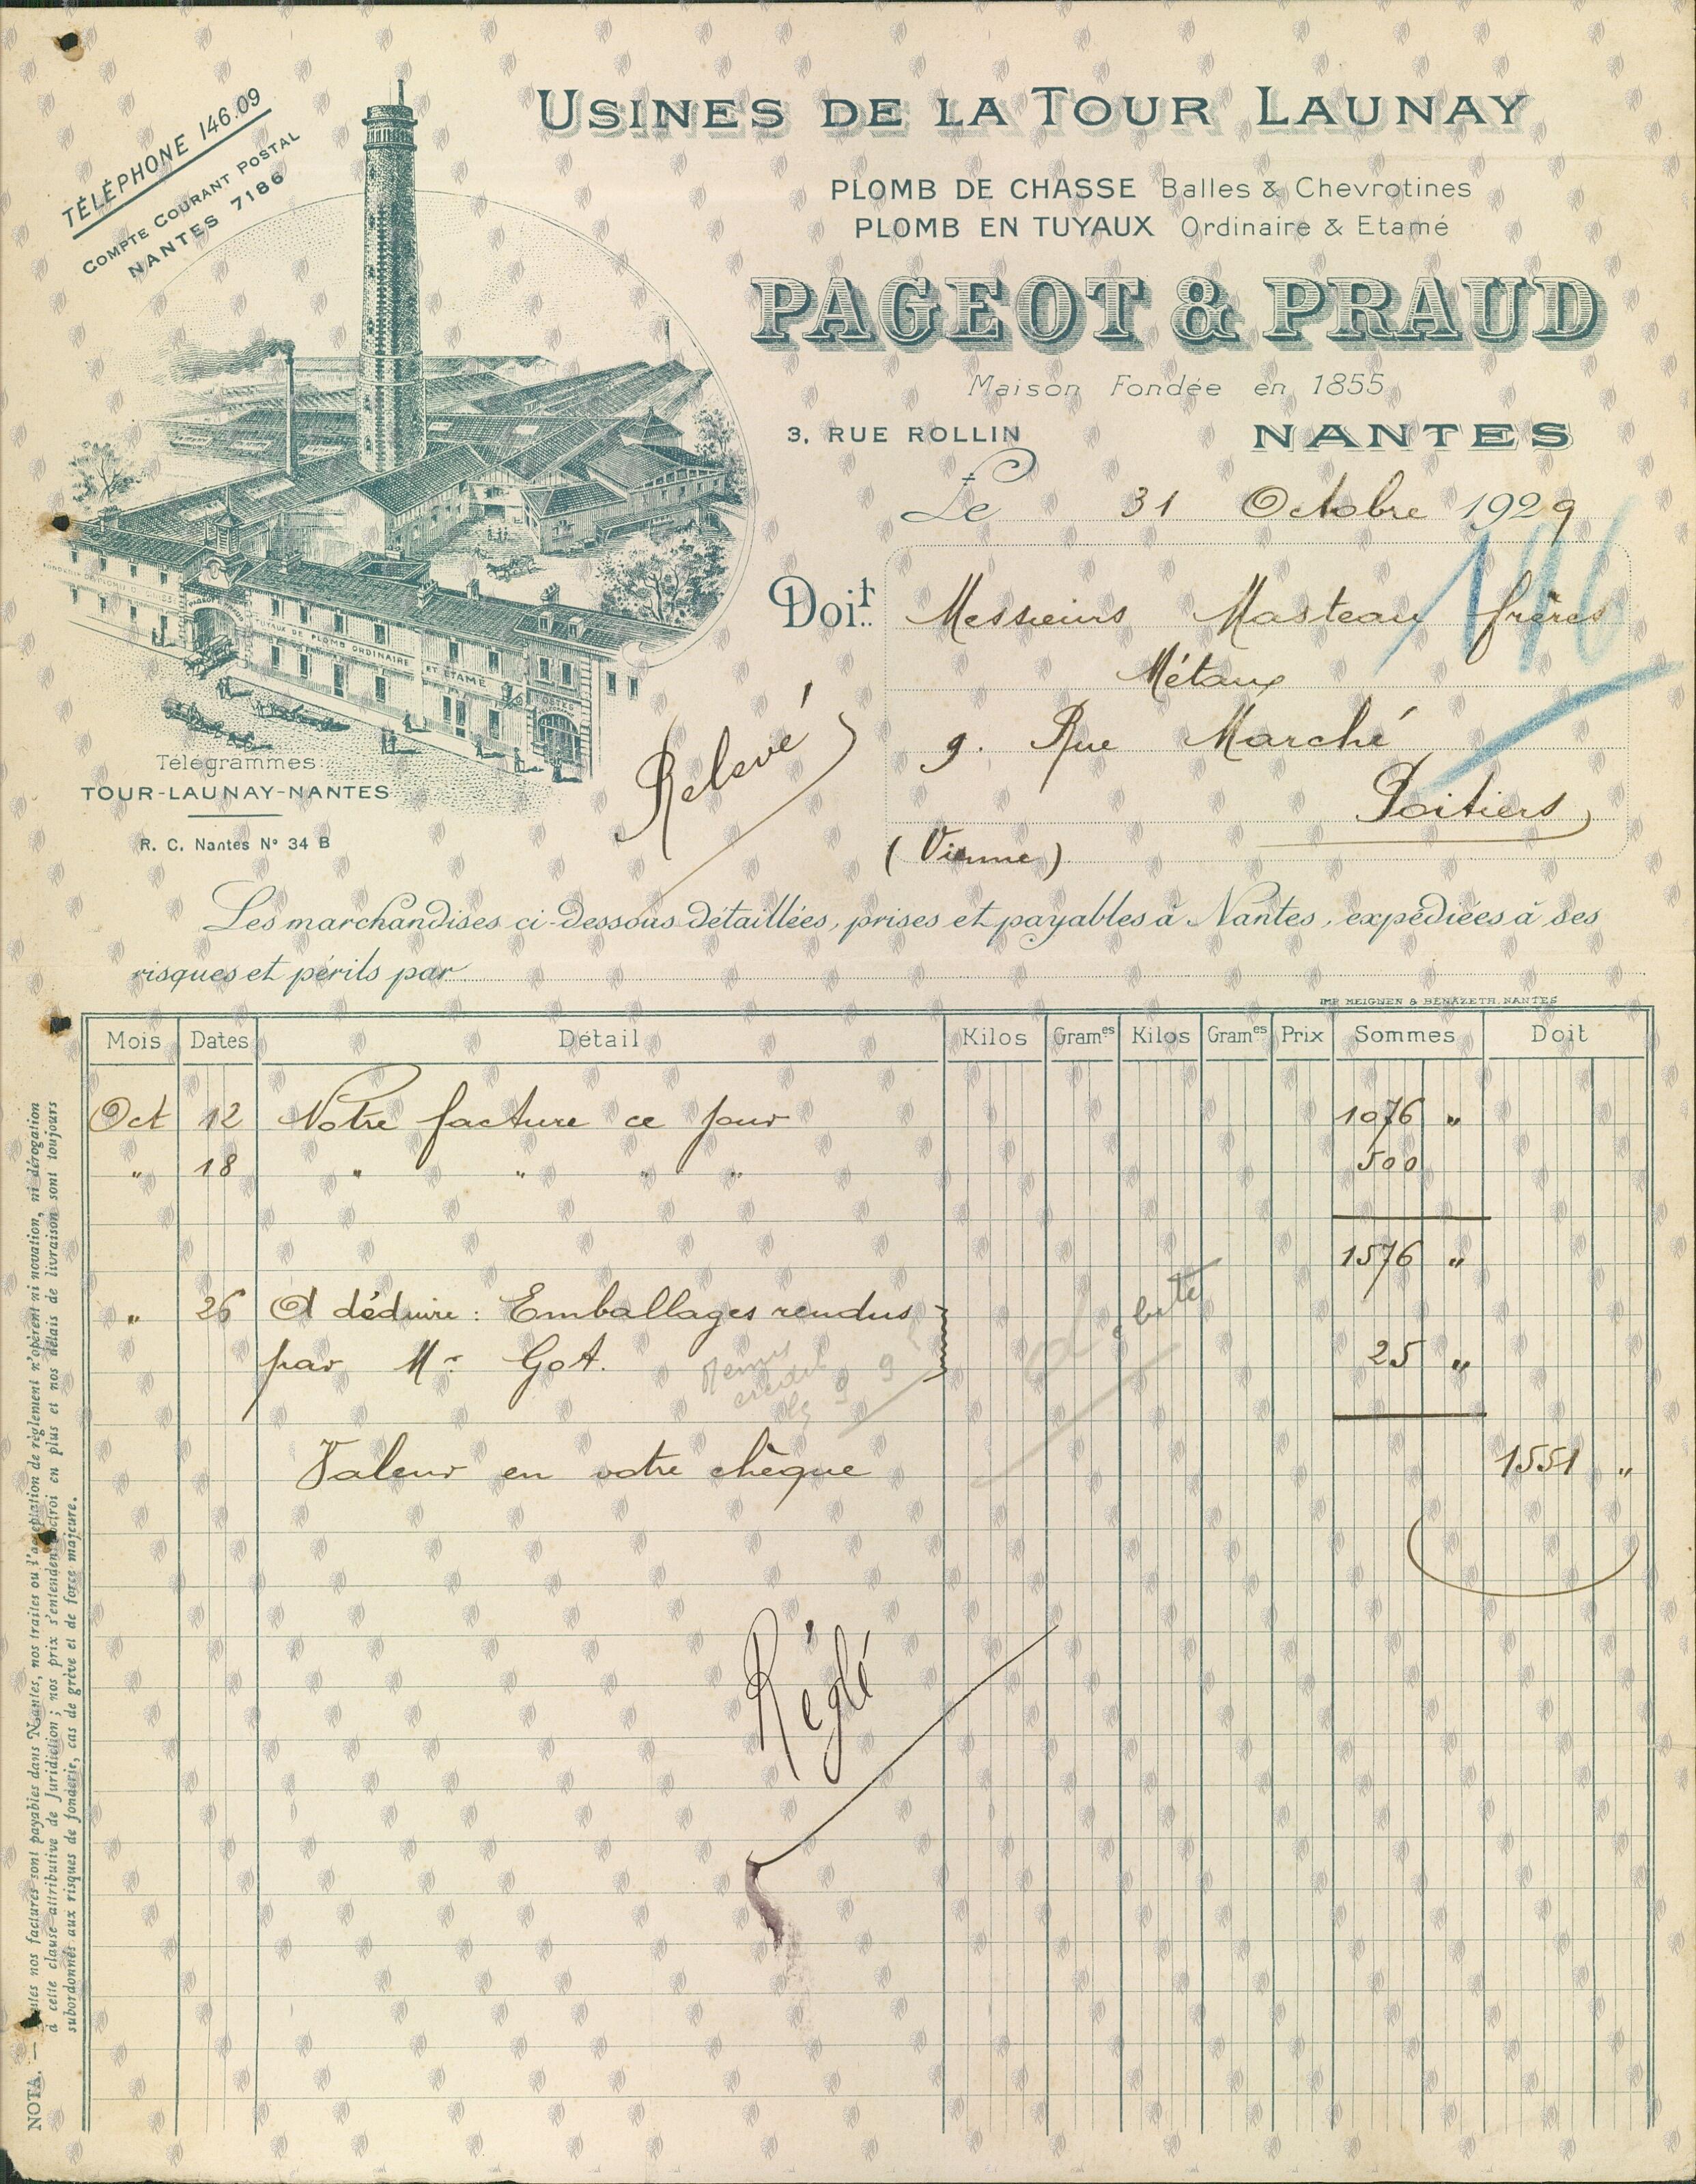 TÉLÉPHONE 146.09
COMPTE COURANT POSTAL
NANTES 7186
USINES DE LA TOUR LAUNAY
PLOMB DE CHASSE Balles & Chevrotines
PLOMB EN TUYAUX Ordinaire & Etamé
PAGEOT & PRAUD
Maison Fondée en 1855
3, RUE ROLLIN NANTES
Le 31 Octobre 1929
Doit Messieurs Masteau frères
Métaux
9. Rue Marché
Poitiers
(Vienne)
Relevé
TUYAUX DE PLOMB ORDINAIRE ET ÉTAMÉ
Télégrammes:
TOUR-LAUNAY-NANTES
R. C. Nantes Nº 34 B
Les marchandises ci-dessous détaillées, prises et payables à Nantes, expédiées à ses
risques et périls par
IMP. MEIGNEN & BENAZETH. NANTES
Mois Dates Détail Kilos Gram.es Kilos Gram.es Prix Sommes Doit
Oct 12 Notre facture ce jour 1076 "
" 18 " " " " 500
1576 "
" 26 A déduire : Emballages rendus
par Mr Got. 25 "
Valeur en votre chèque 1551 "
Réglé
NOTA. — Toutes nos factures sont payables dans Nantes, nos traites ou l'acceptation de règlement n'opèrent ni novation, ni dérogation
à cette clause attributive de Juridiction ; nos prix s'entendent octroi en plus et nos délais de livraison sont toujours
subordonnés aux risques de fonderie, cas de grève et de force majeure.